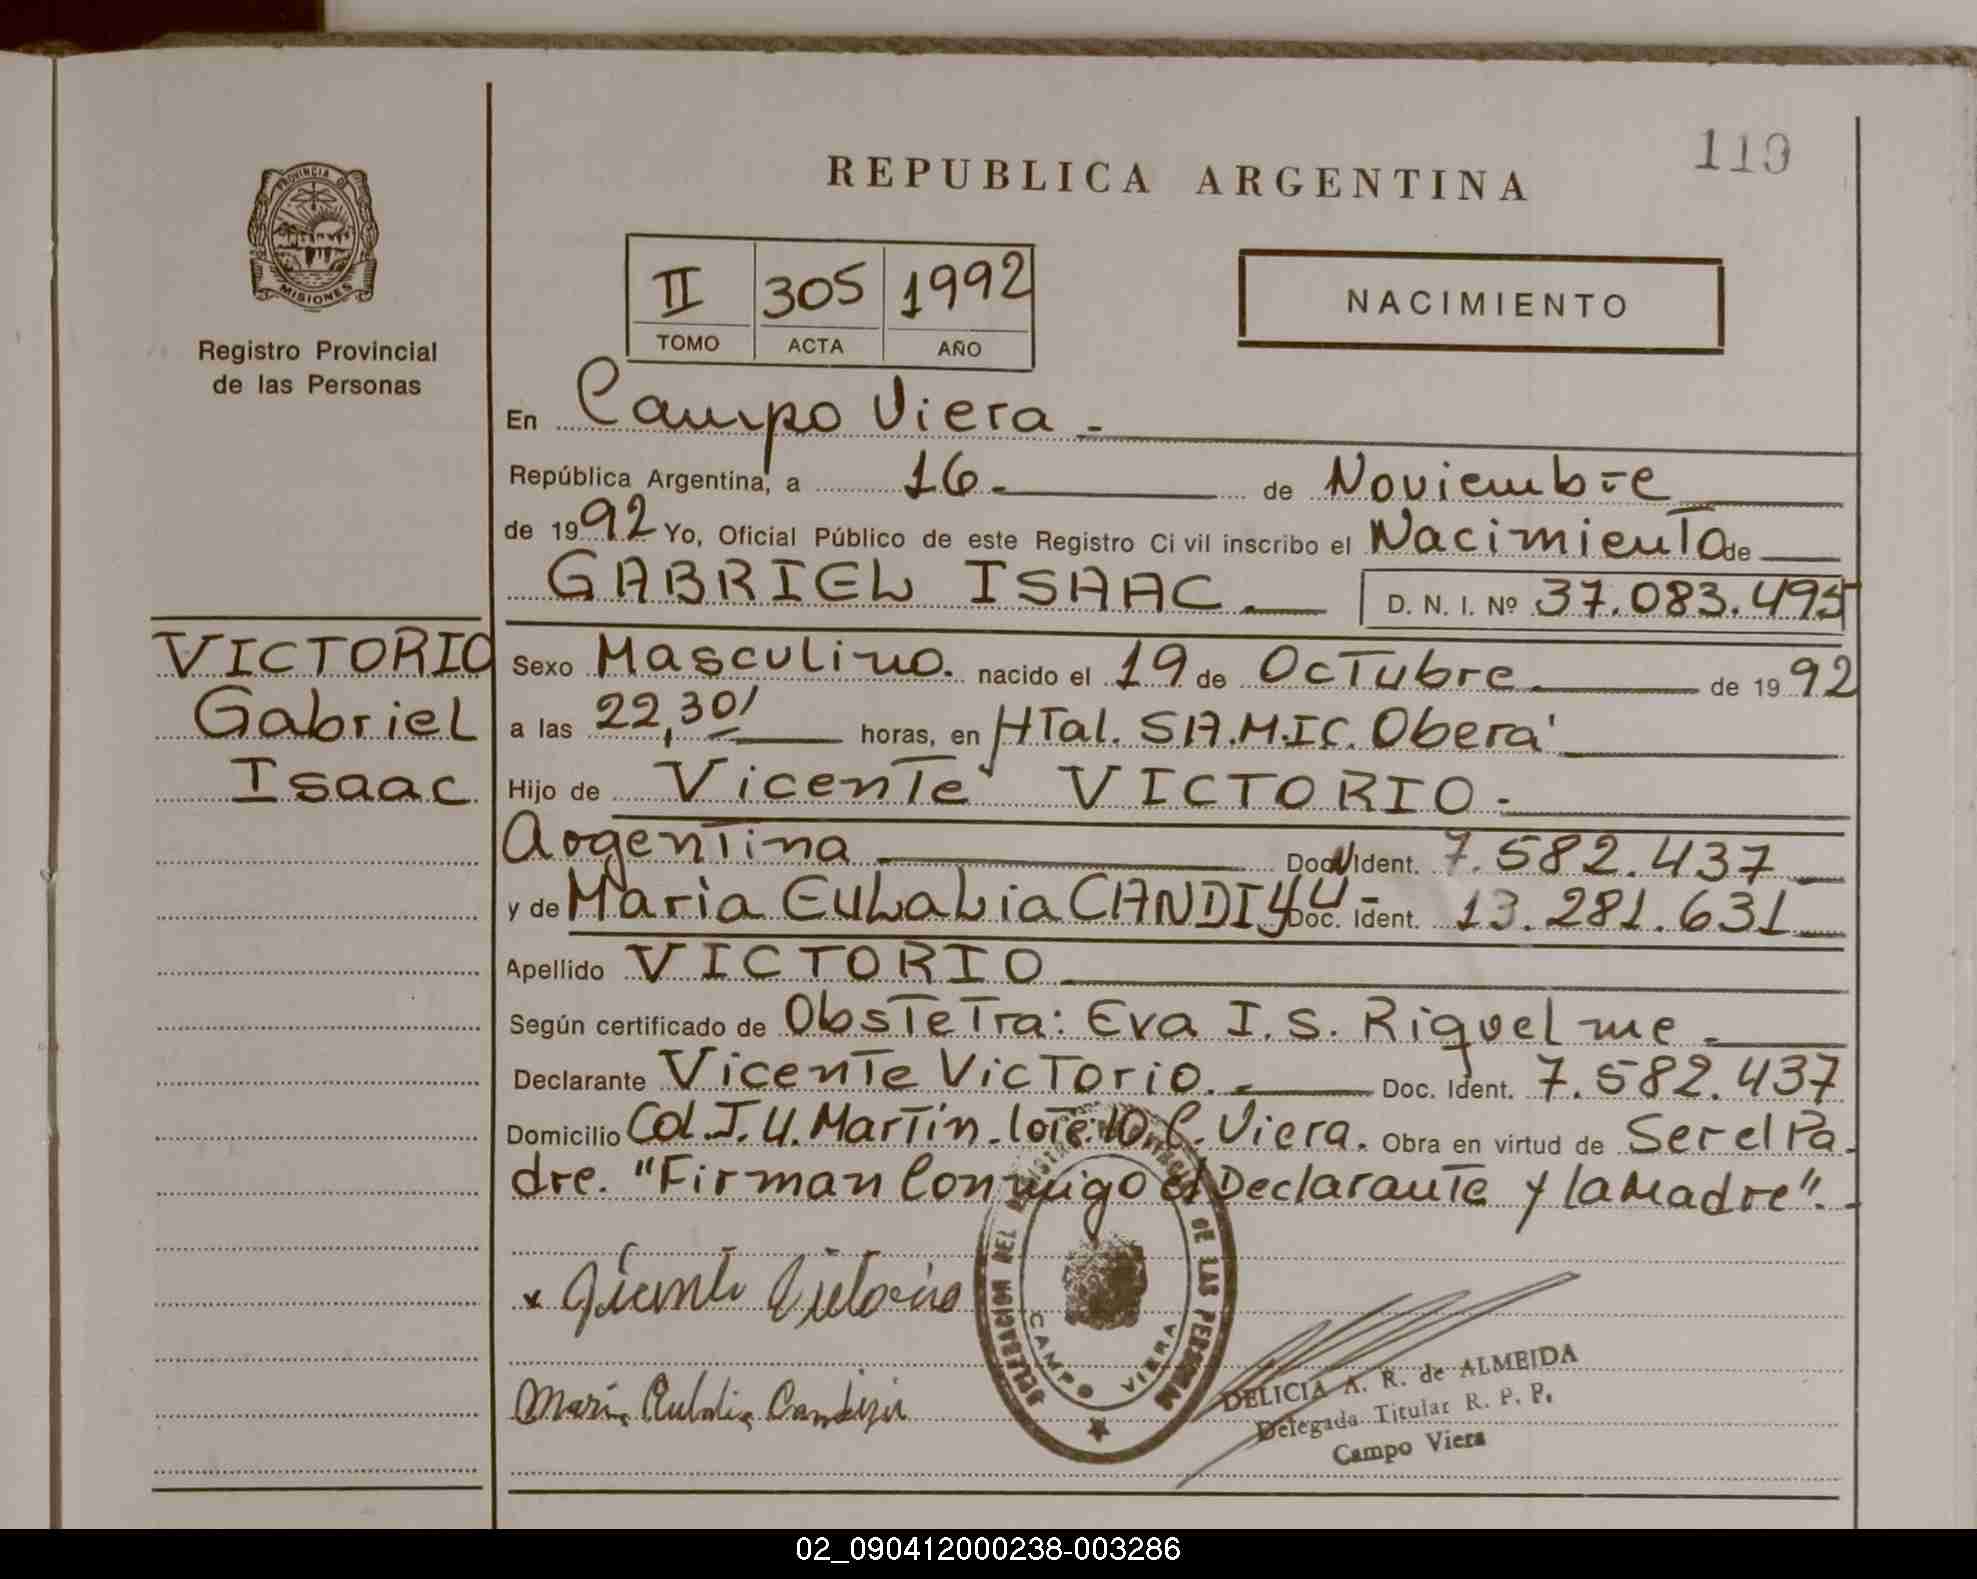 119
REPUBLICA ARGENTINA
PROVINCIA DE
MISIONES
Registro Provincial
de las Personas
II 305 1992
TOMO ACTA AÑO
NACIMIENTO
En Campo Viera.-
República Argentina, a 16.- de Noviembre
de 1992 Yo, Oficial Público de este Registro Civil inscribo el Nacimiento de
GABRIEL ISAAC.- D. N. I. Nº 37.083.495
VICTORIO
Gabriel
Isaac
Sexo Masculino. nacido el 19 de Octubre de 1992
a las 22,30' horas, en HTal. SA.M.IC. Oberá
Hijo de Vicente VICTORIO.-
Argentina Doc. Ident. 7.582.437
y de María EULALia CANDIYU- Doc. Ident. 13.281.631
Apellido VICTORIO
Según certificado de Obstetra: Eva I. S. Riquelme.
Declarante Vicente Victorio.- Doc. Ident. 7.582.437
Domicilio Col. J. U. Martin. lote. 10. C. Viera. Obra en virtud de Ser el Pa-
dre. "Firman Conmigo el Declarante y la Madre".-
x Vicente Victorio
María Eulalia Candiyu
DELEGACION DEL REGISTRO DE LAS PERSONAS
CAMPO VIERA
DELICIA A. R. de ALMEIDA
Delegada Titular R. P. P.
Campo Viera
02_090412000238-003286